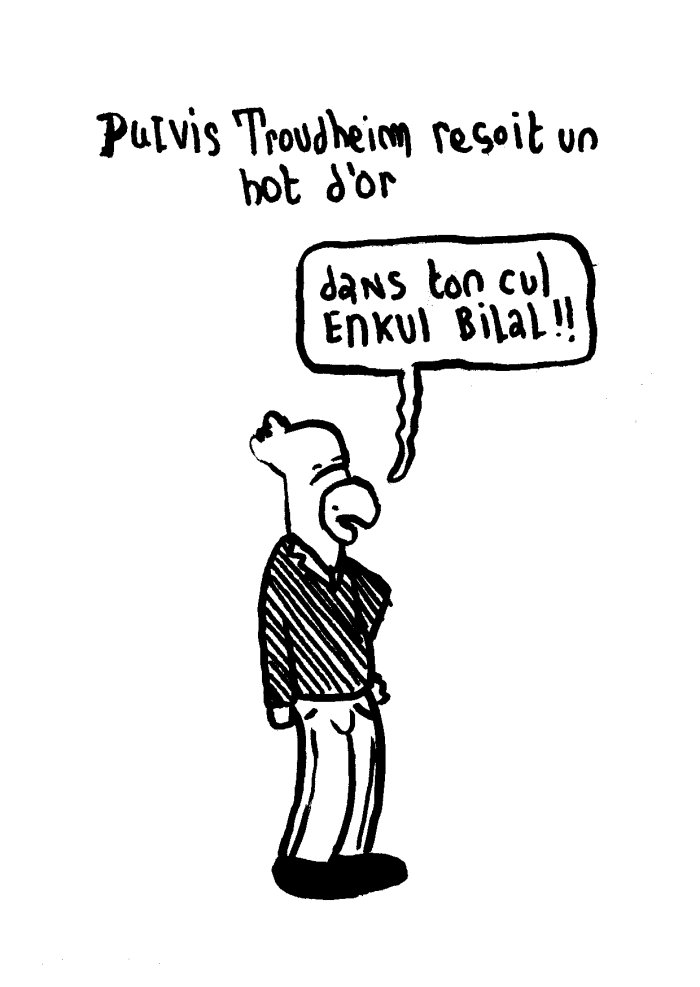 Purvis Troudheim reçoit un
hot d'or
dans ton cul
Enkul Bilal!!